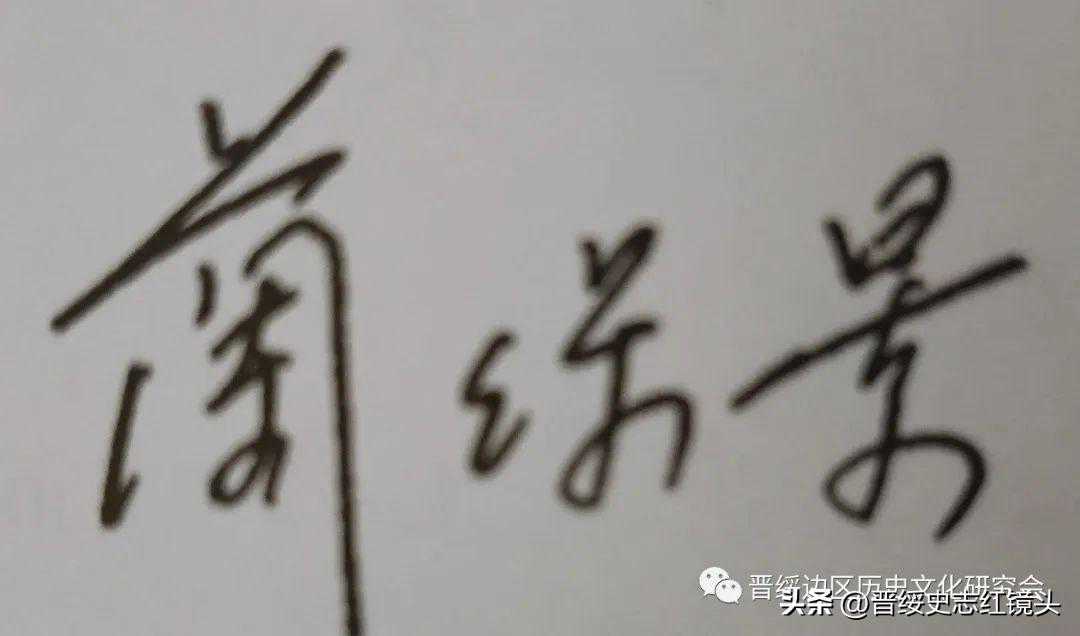 蘭 景
晋绥边区历史文化研究会
头条 @晋绥史志红镜头